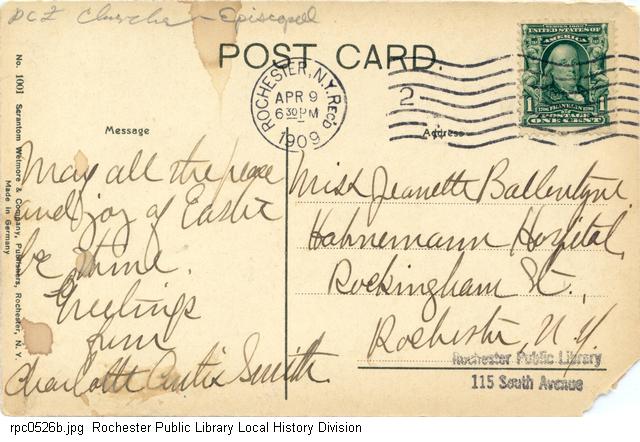 PCI Churches - Episcopal
POST CARD.
ROCHESTER, N.Y. Rec'd
APR 9
6 30 PM
1909
2
SERIES 1902
UNITED STATES OF
AMERICA
1 FRANKLIN 1
POSTAGE
ONE CENT
No. 1001 Scrantom Wetmore & Company, Publishers, Rochester, N. Y.
Made in Germany
Message
May all the peace
and joy of Easter
be thine.
Greetings
from
Charlotte Curtis Smith.
Address
Miss Jeanette Ballentyne.
Hahnemann Hospital,
Rockingham St.,
Rochester, N.Y.
Rochester Public Library
115 South Avenue
rpc0526b.jpg Rochester Public Library Local History Division